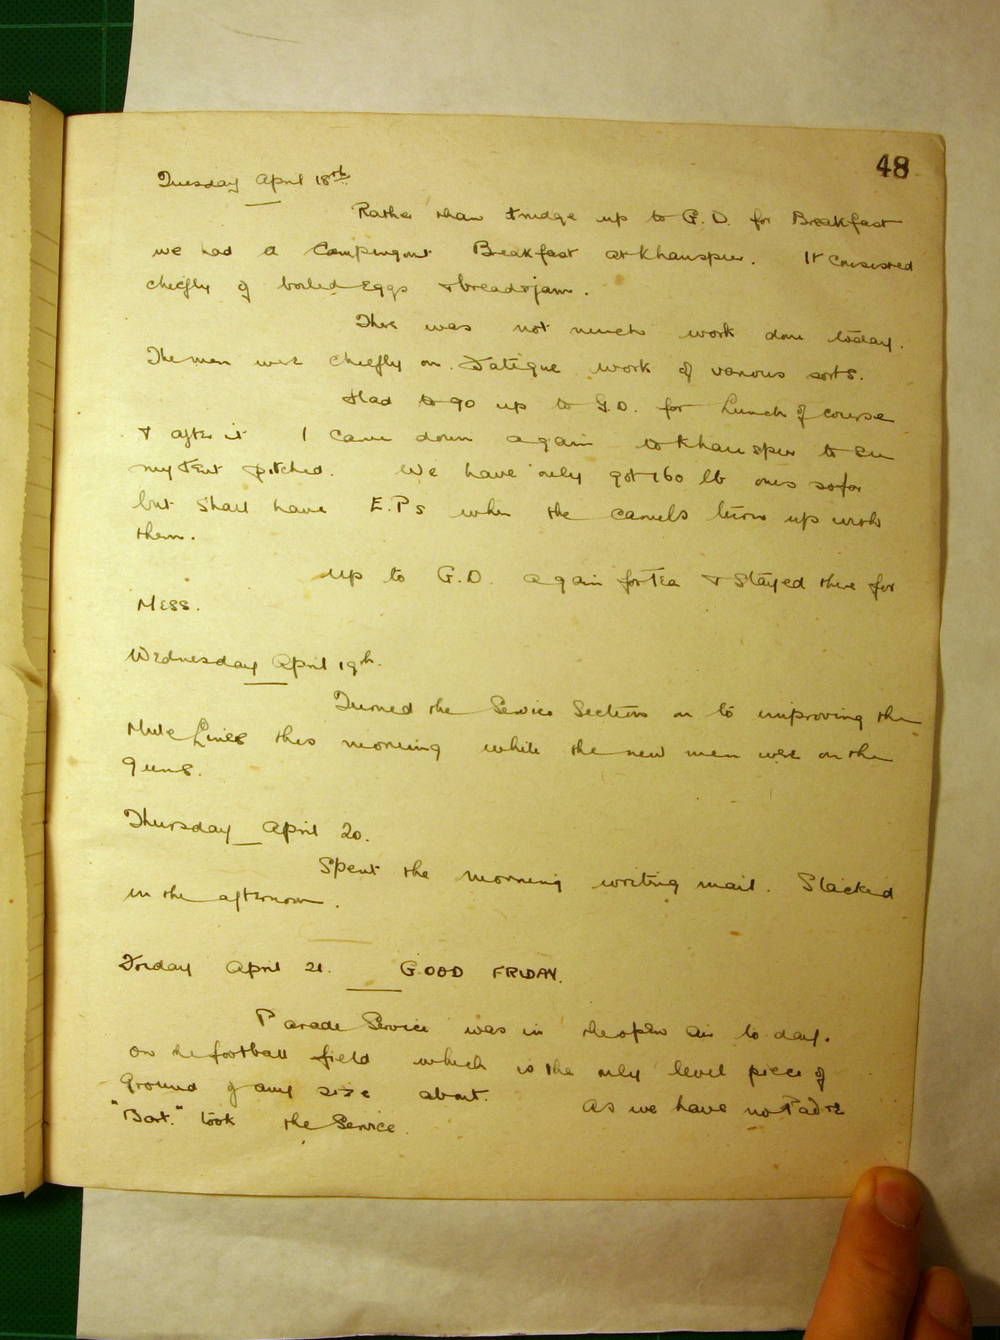 48
Tuesday April 18th
Rather than trudge up to G.D. for Breakfast
we had a Campingout Breakfast at Khanspur. It consisted
chiefly of boiled Eggs & bread & jam.
There was not much work done today.
The men were chiefly on Fatigue work of various sorts.
Had to go up to G.D. for Lunch of course
& after it I came down again to Khanspur to see
my tent pitched. We have only got 160 lb ones so far
but shall have E.Ps when the camels turn up with
them.
Up to G.D. again for Tea & stayed there for
Mess.
Wednesday April 19th.
Turned the Service Section on to improving the
Mule Lines this morning while the new men were on the
guns.
Thursday April 20.
Spent the morning writing mail. Slacked
in the afternoon.
Friday April 21. GOOD FRIDAY.
Parade Service was in the open air to day.
on the football field which is the only level piece of
Ground of any size about. As we have no Padre
"Bart." took the Service.